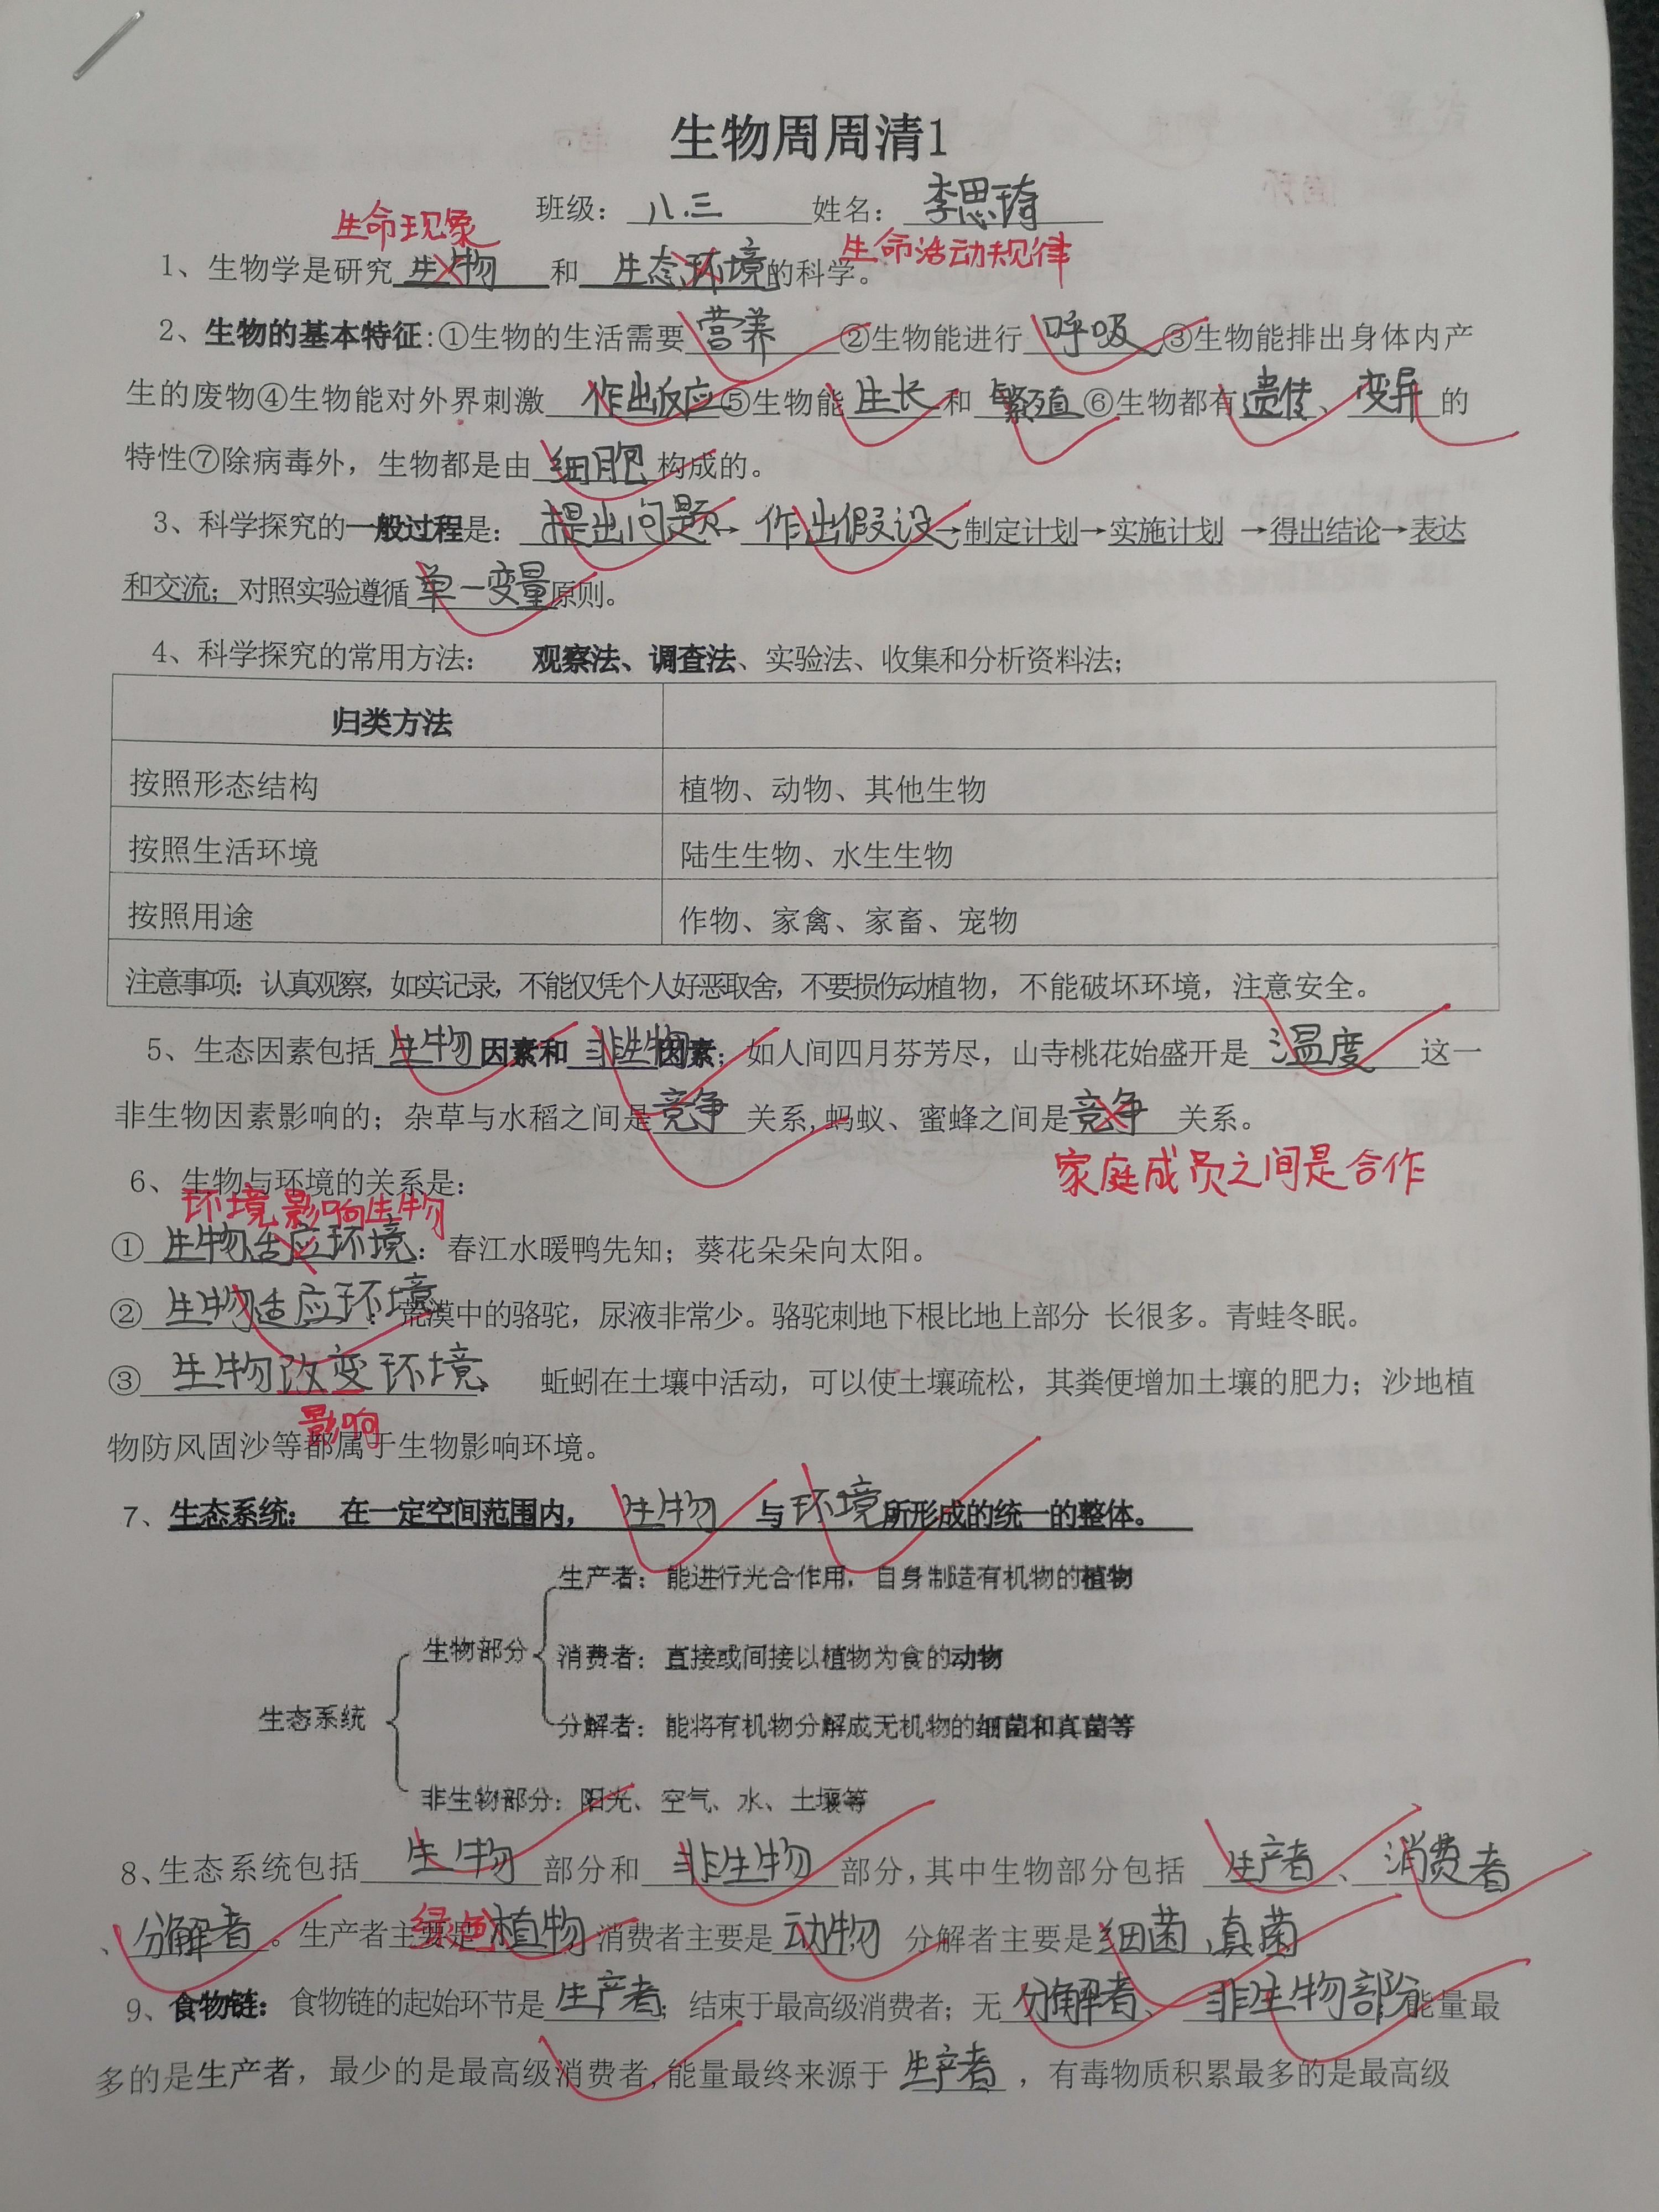 生物周周清1
班级：八.三 姓名：李思琦
生命现象 生命活动规律
1、生物学是研究生物和生态环境的科学。
2、生物的基本特征:①生物的生活需要营养②生物能进行呼吸③生物能排出身体内产
生的废物④生物能对外界刺激作出反应⑤生物能生长和繁殖⑥生物都有遗传、变异的
特性⑦除病毒外，生物都是由细胞构成的。
3、科学探究的一般过程是：提出问题→作出假设→制定计划→实施计划→得出结论→表达
和交流；对照实验遵循单一变量原则。
4、科学探究的常用方法：观察法、调查法、实验法、收集和分析资料法；
归类方法
按照形态结构 植物、动物、其他生物
按照生活环境 陆生生物、水生生物
按照用途 作物、家禽、家畜、宠物
注意事项：认真观察，如实记录，不能仅凭个人好恶取舍，不要损伤动植物，不能破坏环境，注意安全。
5、生态因素包括生物因素和非生物因素；如人间四月芬芳尽，山寺桃花始盛开是温度这一
非生物因素影响的；杂草与水稻之间是竞争关系,蚂蚁、蜜蜂之间是竞争关系。
家庭成员之间是合作
6、生物与环境的关系是：
环境影响生物
①生物适应环境：春江水暖鸭先知；葵花朵朵向太阳。
②生物适应环境：荒漠中的骆驼，尿液非常少。骆驼刺地下根比地上部分 长很多。青蛙冬眠。
③生物改变环境 蚯蚓在土壤中活动，可以使土壤疏松，其粪便增加土壤的肥力；沙地植
影响
物防风固沙等都属于生物影响环境。
7、生态系统： 在一定空间范围内，生物与环境所形成的统一的整体。
生产者：能进行光合作用，自身制造有机物的植物
生物部分
消费者：直接或间接以植物为食的动物
生态系统
分解者：能将有机物分解成无机物的细菌和真菌等
非生物部分：阳光、空气、水、土壤等
8、生态系统包括生物部分和非生物部分,其中生物部分包括生产者、消费者
、分解者。生产者主要是绿色植物 消费者主要是动物 分解者主要是细菌、真菌
9、食物链：食物链的起始环节是生产者；结束于最高级消费者；无分解者、非生物部分；能量最
多的是生产者，最少的是最高级消费者,能量最终来源于生产者，有毒物质积累最多的是最高级